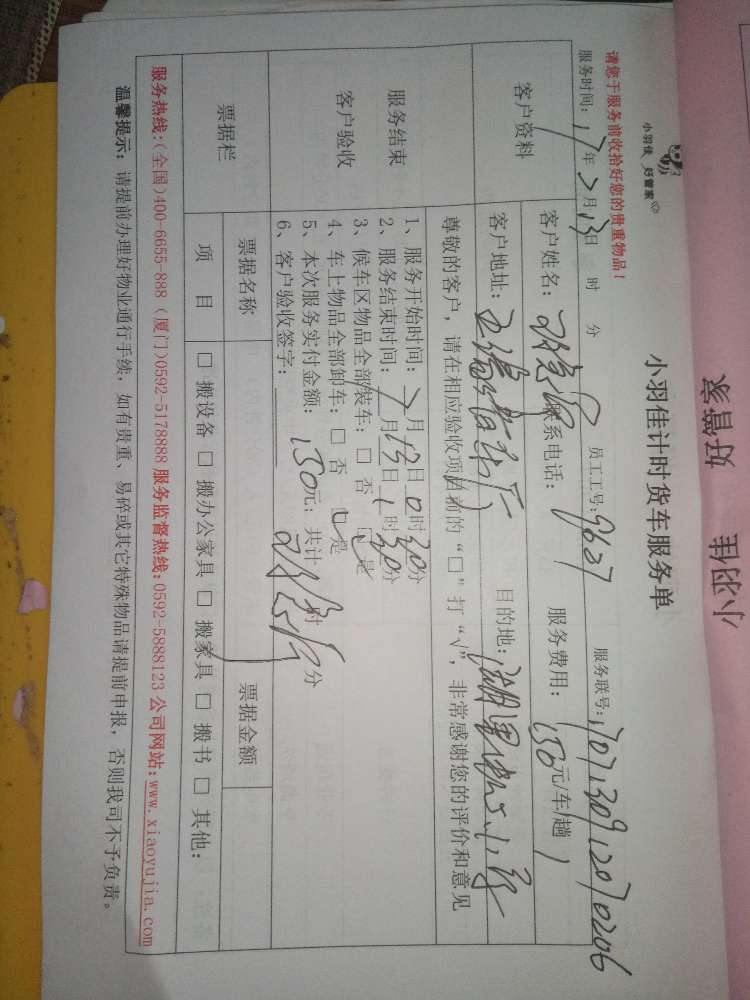 小羽佳 好管家
小羽佳 好管家
小羽佳计时货车服务单
请您于服务前收拾好您的贵重物品！
服务时间：17年7月13日 时 分 员工工号：9627 服务联号：
客户资料
客户姓名： 联系电话： 服务费用：150元/车/趟
客户地址： 目的地：
尊敬的客户，请在相应验收项目前的“□”打“√”，非常感谢您的评价和意见
服务结束
客户验收
1、服务开始时间：7月13日0时30分
2、服务结束时间：7月13日1时30分
3、候车区物品全部装车：□ 否 □ 是
4、车上物品全部卸车：□ 否 □ 是
5、本次服务实付金额：150元；共计 时 分
6、客户验收签字：
票据栏
票据名称 票据金额
项 目 □ 搬设备 □ 搬办公家具 □ 搬家具 □ 搬书 □ 其他：
服务热线：(全国)400-6655-888 (厦门)0592-5178888 服务监督热线：0592-5888123 公司网站：www.xiaoyujia.com
温馨提示：请提前办理好物业通行手续，如有贵重、易碎或其它特殊物品请提前申报，否则我司不予负责。